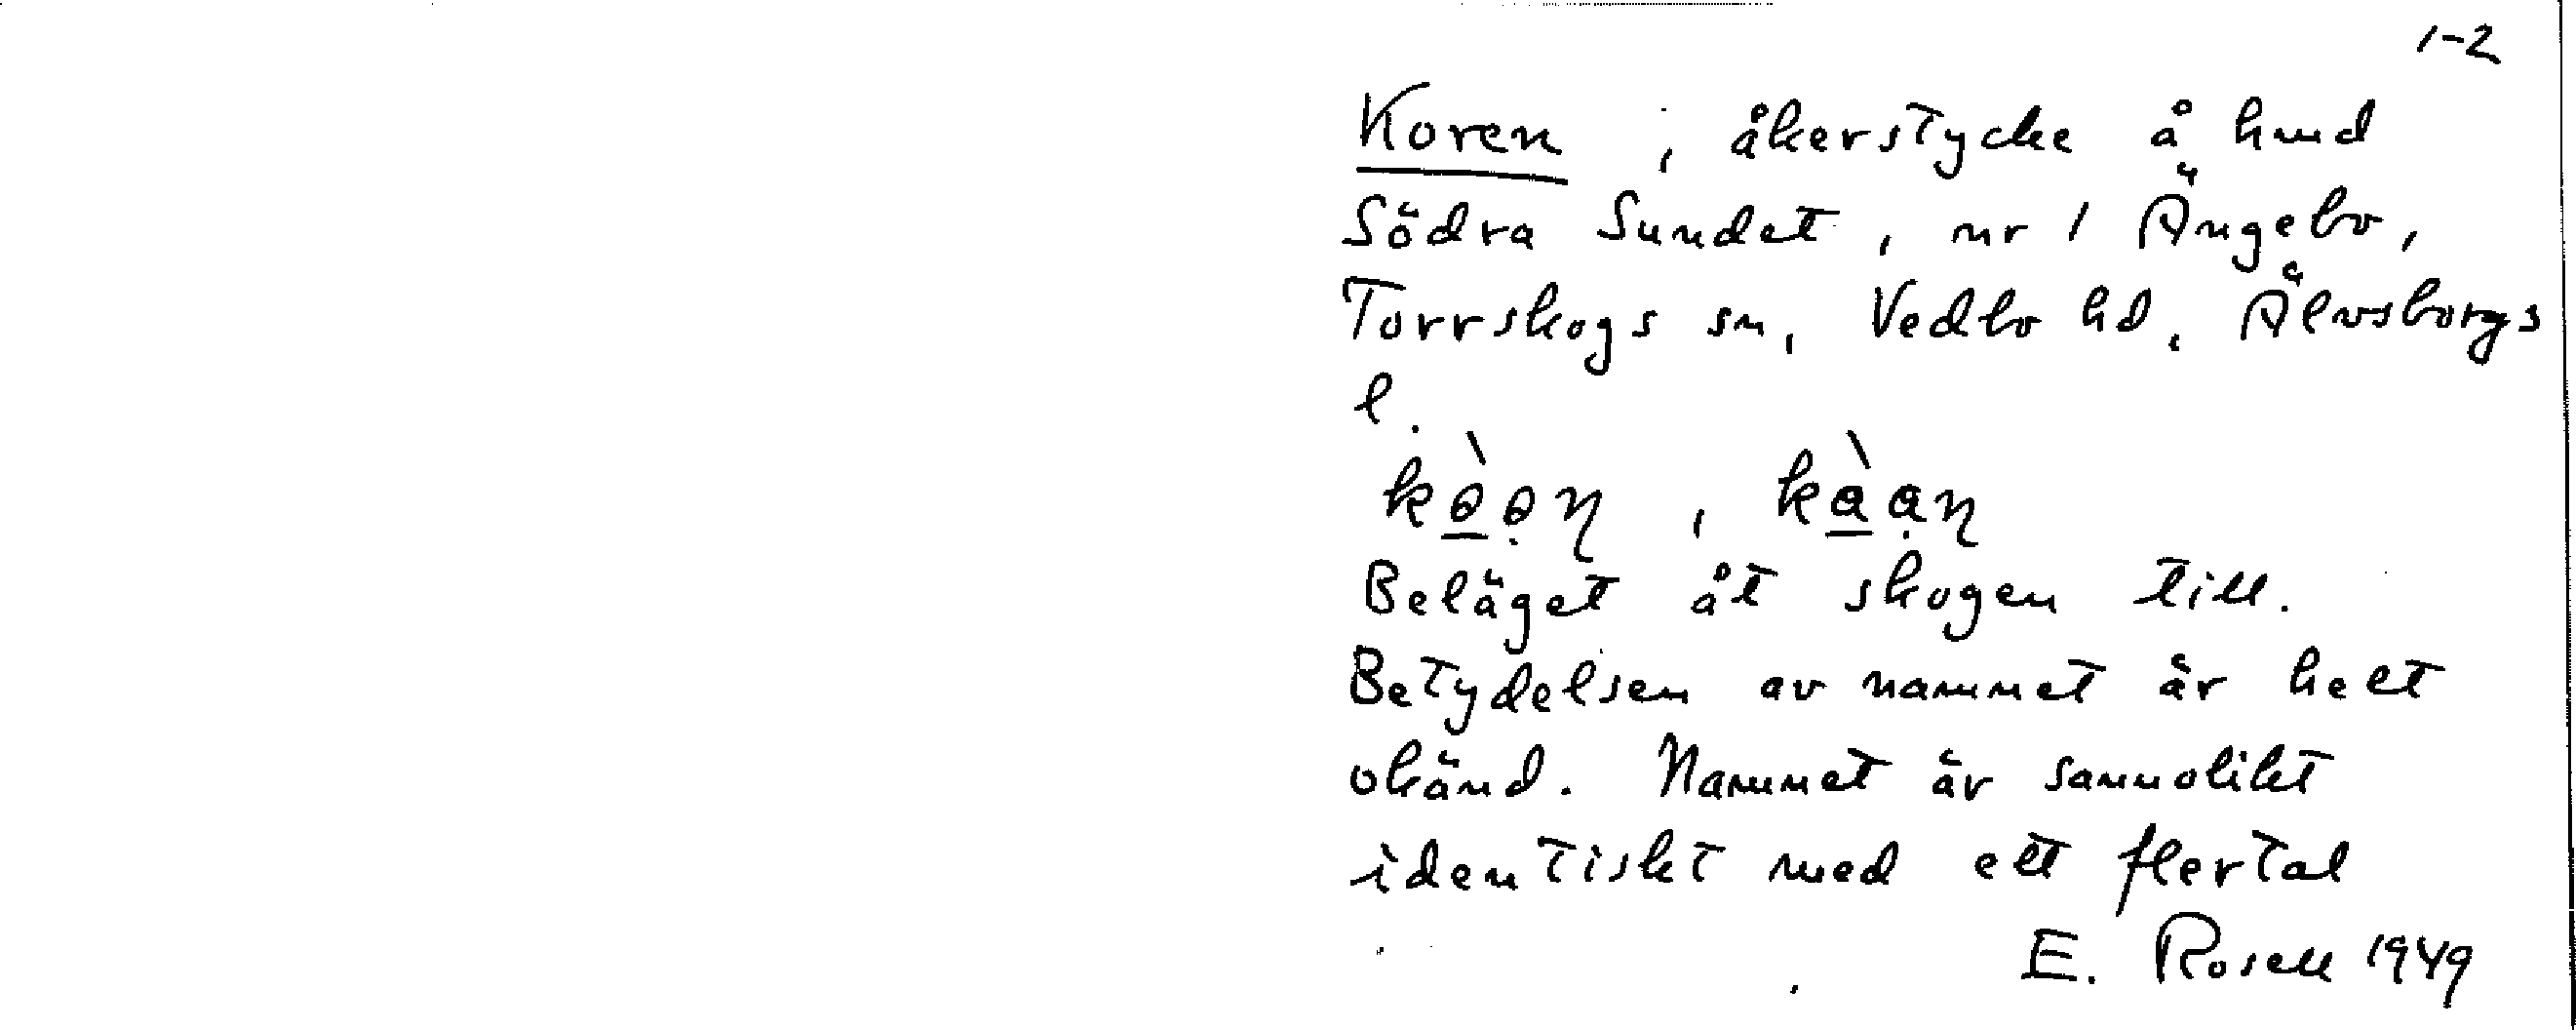 1-2
Koren, åkerstycke å hmd
Södra Sundet, nr 1 Ängebo,
Torrskogs sn, Vedbo hd, Älvsborgs
l.
Beläget åt skogen till.
Betydelsen av namnet är helt
okänd. Namnet är sannolikt
identiskt med ett flertal
E. Rosell 1949